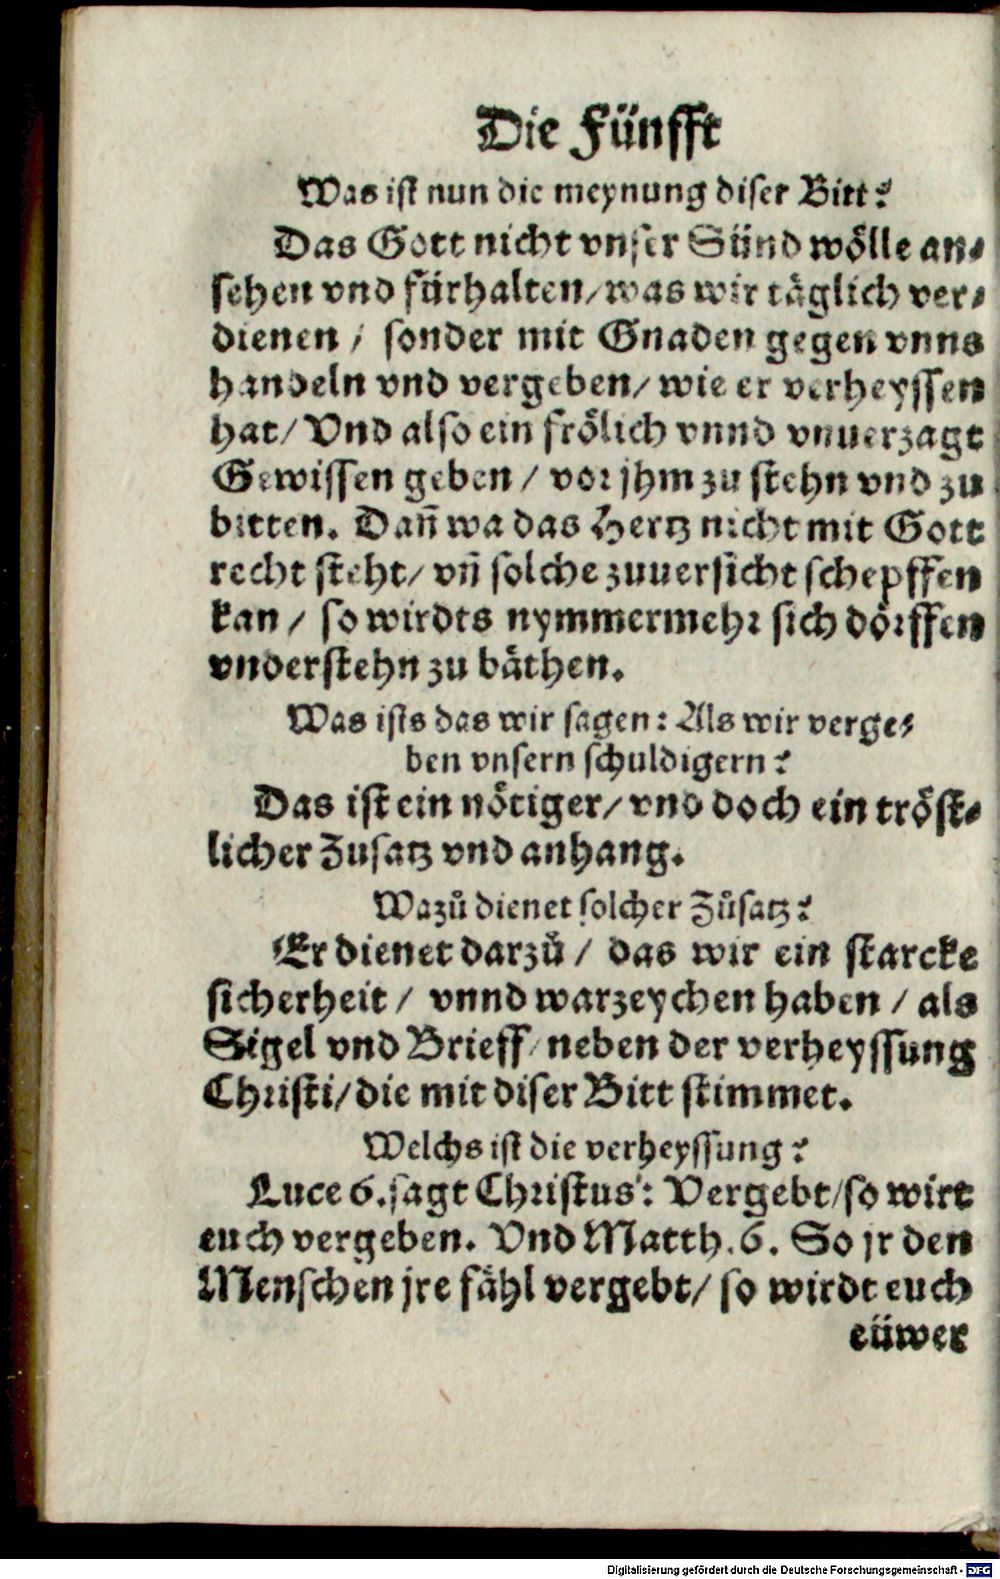 Die Fünfft
Was ist nun die meynung diser Bitt?
Das Gott nicht vnser Sünd wölle an-
sehen vnd fürhalten/was wir täglich ver-
dienen / sonder mit Gnaden gegen vnns
handeln vnd vergeben/ wie er verheyssen
hat/ Vnd also ein frölich vnnd vnuerzagt
Gewissen geben / vor jhm zu stehn vnd zu
bitten. Dañ wa das Hertz nicht mit Gott
recht steht/ vñ solche zuuersicht schepffen
kan / so wirdts nymmermehr sich dörffen
vnderstehn zu bäthen.
Was ists das wir sagen: Als wir verge-
ben vnsern schuldigern?
Das ist ein nötiger/ vnd doch ein tröst-
licher Zusatz vnd anhang.
Wazů dienet solcher Zůsatz?
Er dienet darzů / das wir ein starcke
sicherheit / vnnd warzeychen haben / als
Sigel vnd Brieff/ neben der verheyssung
Christi/die mit diser Bitt stimmet.
Welchs ist die verheyssung?
Luce 6.sagt Christus: Vergebt/so wirt
euch vergeben. Vnd Matth.6. So jr den
Menschen jre fähl vergebt/ so wirdt euch
eüwer
Digitalisierung gefördert durch die Deutsche Forschungsgemeinschaft - DFG